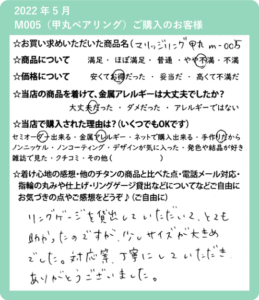 2022年5月
M005（甲丸ペアリング）ご購入のお客様
☆お買い求めいただいた商品名（マリッジリング甲丸 m-005
☆商品について　満足・ほぼ満足・普通・やや不満・不満
☆価格について　安くてお得だった・妥当だ・高くて不満だ
☆当店の商品を着けて、金属アレルギーは大丈夫でしたか？
大丈夫だった・ダメだった・アレルギーではない
☆当店で購入された理由は？（いくつでもOKです）
セミオーダー出来る・金属アレルギー・ネットで購入出来る・手作りだから
ノンニッケル・ノンコーティング・デザインが気に入った・発色や結晶が好き
雑誌で見た・クチコミ・その他（　）
☆着け心地の感想・他のチタンの商品と比べた点・電話メール対応・
指輪の丸みや仕上げ・リングゲージ貸出などについてなどご自由に
お気づきの点やご感想をどうぞ♪（ご自由に）
リングゲージを貸出していただいて、とても
助かったのですが、少しサイズが大きめ
でした。対応等、丁寧にしていただき
ありがとうございました。